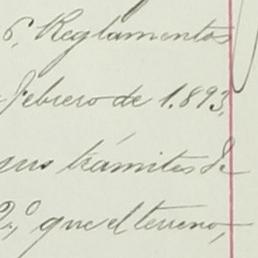 6, Reglamentos
febrero de 1.893,
sus trámites de
2º, que el terreno,